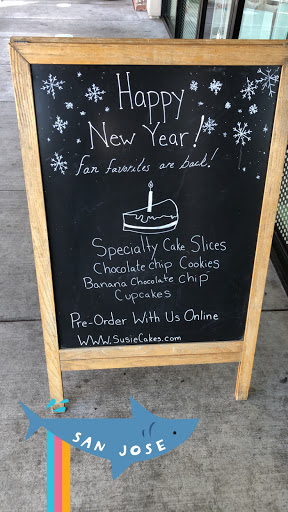 Happy
New Year!
fan favorites are back!
Specialty Cake Slices
Chocolate chip Cookies
Banana Chocolate chip
Cupcakes
Pre-Order With Us Online
WWW.SusieCakes.com
SAN JOSE